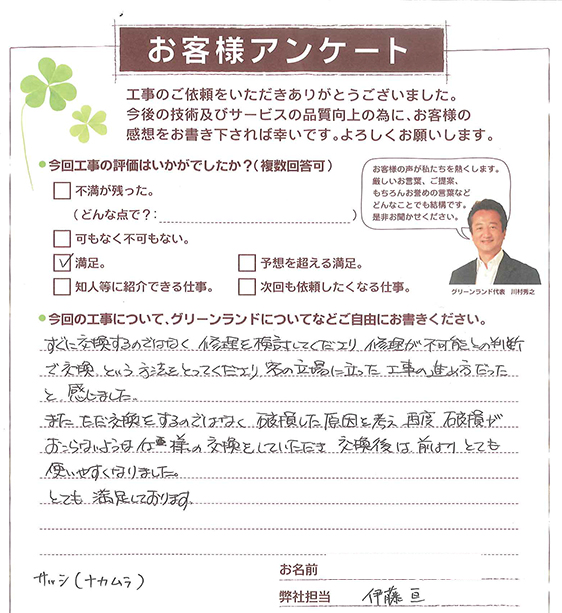 お客様アンケート
工事のご依頼をいただきありがとうございました。
今後の技術及びサービスの品質向上の為に、お客様の
感想をお書き下されば幸いです。よろしくお願いします。
●今回工事の評価はいかがでしたか?(複数回答可)
不満が残った。
(どんな点で?: )
可もなく不可もない。
満足。
予想を超える満足。
知人等に紹介できる仕事。
次回も依頼したくなる仕事。
お客様の声が私たちを熱くします。
厳しいお言葉、ご提案、
もちろんお誉めの言葉など
どんなことでも結構です。
是非お聞かせください。
グリーンランド代表 川村秀之
●今回の工事について、グリーンランドについてなどご自由にお書きください。
すぐに交換するのではなく 修理を検討してくださり 修理が不可能との判断
で交換 という 方法をとってくださり 客の立場に立った 工事の進め方だった
と 感じました。
また ただ交換をするのではなく 破損した原因を考え 再度 破損が
おこらないような 仕様の交換をしていただき 交換後は 前よりとても
使いやすくなりました。
とても 満足しております。
サッシ(ナカムラ)
お名前
弊社担当 伊藤 亘